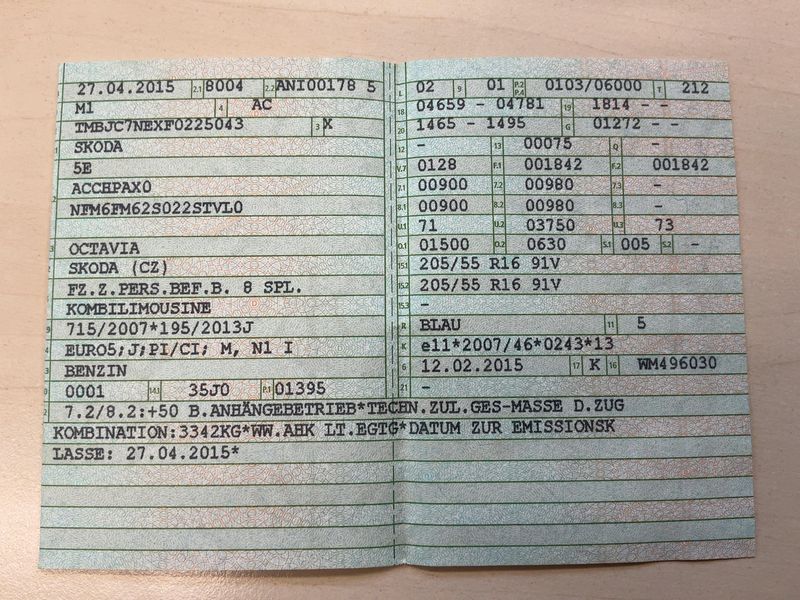 27.04.2015 2.1 8004 2.2 ANI00178 5
M1 4 AC
TMBJC7NEXF0225043 3 X
SKODA
5E
ACCHPAX0
NFM6FM62S022STVL0
OCTAVIA
SKODA (CZ)
FZ.Z.PERS.BEF.B. 8 SPL.
KOMBILIMOUSINE
715/2007*195/2013J
EURO5;J;PI/CI; M, N1 I
BENZIN
0001 14.1 35J0 P.1 01395
L 02 9 01 P.2 P.4 0103/06000 T 212
18 04659 - 04781 19 1814 - -
20 1465 - 1495 G 01272 - -
12 - 13 00075 Q -
V.7 0128 F.1 001842 F.2 001842
7.1 00900 7.2 00980 7.3 -
8.1 00900 8.2 00980 8.3 -
U.1 71 U.2 03750 U.3 73
O.1 01500 O.2 0630 S.1 005 S.2 -
15.1 205/55 R16 91V
15.2 205/55 R16 91V
15.3 -
R BLAU 11 5
K e11*2007/46*0243*13
6 12.02.2015 17 K 16 WM496030
21 -
7.2/8.2:+50 B.ANHÄNGEBETRIEB*TECHN.ZUL.GES-MASSE D.ZUG
KOMBINATION:3342KG*WW.AHK LT.EGTG*DATUM ZUR EMISSIONSK
LASSE: 27.04.2015*